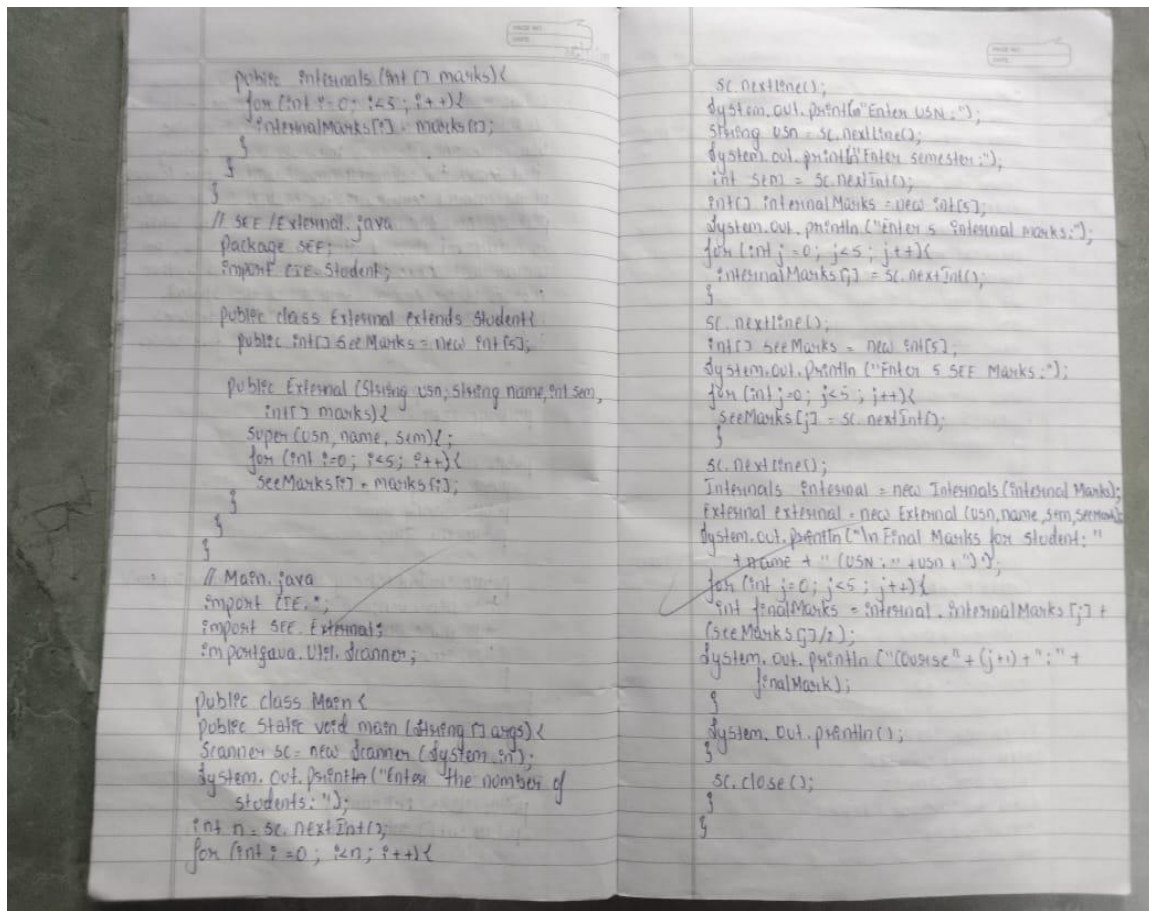 PAGE NO:
DATE:
public internals (int [] marks){
for (int i=0; i<5; i++){
internalMarks[i] = marks[i];
}
}
}
// SEE /External.java
package SEE;
import CIE.Student;
public class External extends Student{
public int[] seeMarks = new int[5];
public External (String usn, String name, int sem,
int[] marks){
super (usn, name, sem){;
for (int i=0; i<5; i++){
seeMarks[i] = marks[i];
}
}
}
// Main.java
import CIE.*;
import SEE.External;
import java.util.Scanner;
public class Main{
public static void main (String [] args){
Scanner sc = new Scanner (System.in);
System.out.println ("Enter the number of
students: ");
int n = sc.nextInt();
for (int i=0; i<n; i++){
PAGE NO:
DATE:
sc.nextline();
System.out.println"Enter USN:");
String usn = sc.nextline();
System.out.println"Enter semester:");
int sem = sc.nextInt();
int[] internalMarks = new int[5];
System.out.println ("Enter 5 internal marks:");
for (int j=0; j<5; j++){
internalMarks[j] = sc.nextInt();
}
sc.nextline();
int[] seeMarks = new int[5];
System.out.println ("Enter 5 SEE Marks:");
for (int j=0; j<5; j++){
seeMarks[j] = sc.nextInt();
}
sc.nextline();
Internals internal = new Internals (internal Marks);
External external = new External (usn, name, sem, seeMarks);
System.out.println ("\n Final Marks for student: "
+ name + " (USN: " + usn + ")");
for (int j=0; j<5; j++){
int finalMarks = internal.internalMarks[j] +
(seeMarks[j]/2);
System.out.println ("Course" + (j+1) + ":" +
finalMark);
}
System.out.println();
}
sc.close();
}
}